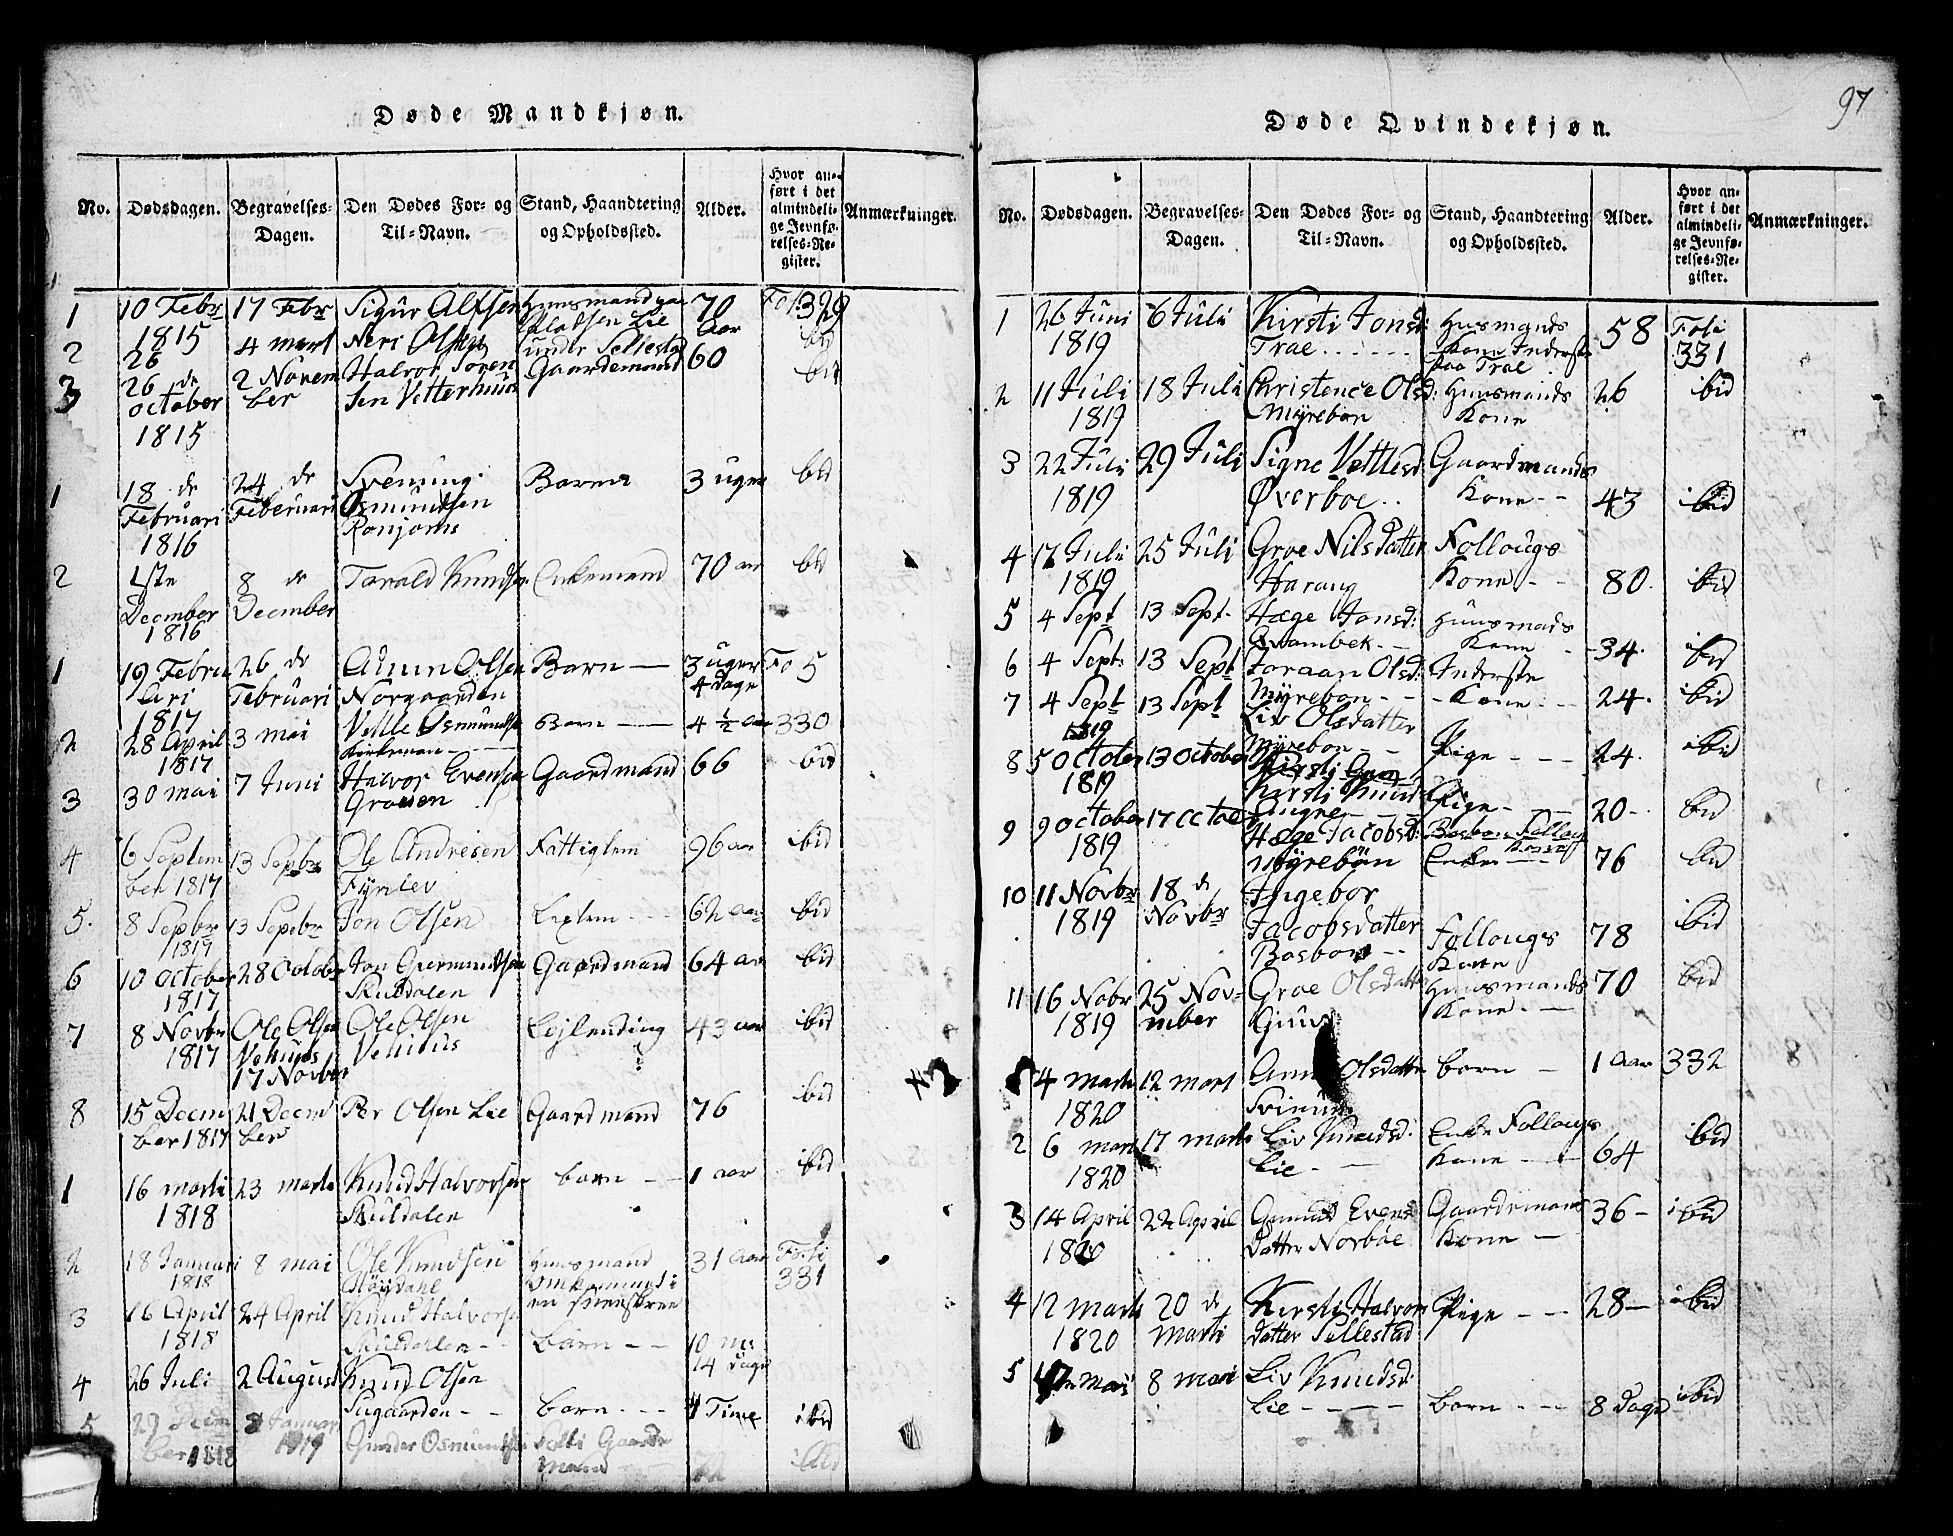 Døde Mandkjøn.
No. Dødsdagen. Begravelses-Dagen. Den Dødes For- og Til-Navn. Stand, Haandtering og Opholdssted. Alder. Hvor anført i det almindelige Jevnførelses-Register. Anmærkninger.
1 10 Febr 1815 17 Febr Sigur Alfsen Huusmand 70 Aar Fol 329
2 26 4 mart Neri Olsen under Seliestad 60 ibid
3 26 de october 1815 2 November Halvor Sørensen Vetterhuus Gaardemand ibid
1 18 de Februari 1816 24 de Februari Svenung Osmundsen Ronjom Barn 3 uger ibid
2 1ste December 1816 8 de December Tarald Knudsen Enkemand 70 aar ibid
1 19 Februari 1817 26 de Februari Olsen Norgaarden Barn 3 uger 4 dage Fo 5
2 28 April 1817 3 mai Vetle Osmundsen Barn 4 ½ aar 330
3 30 mai 7 Juni Halvor Evensen Graven Gaardmand 66 ibid
4 6 September 1817 13 Sepbr Ole Andresen Fattiglem 96 aar ibid
5. 8 Sepbr 1817 13 Sepbr Jon Olsen Lexlem 62 aar ibid
6 10 October 1817 28 October Jon Giermundsen Skuldalen Gaardmand 64 aar ibid
7 8 Novbr 1817 Ole Olsen Vehuus 17 Novbr Ole Olsen Vehuus Lejlending 43 aar ibid
8 15 December 1817 21 December Per Olsen Lie Gaardmand 76 ibid
1 16 marti 1818 23 marti Knud Halvorsen Skuldalen barn 1 aar ibid
2 18 Januari 1818 8 mai Ole Knudsen Høydahl Huusmand omkommet i en sneeskree 31 aar Foli 331
3 16 April 1818 24 April Knud Halvorsen Skuldalen barn 10 m: 14 dage
4 26 Juli 2 August Knud Olsen Sugaarden barn 4 Time ibid
5 29 December 1818 Januar 1819 Gunder Osmundsen Gaardemand ibid
97
Døde Qvindekjøn.
No. Dødsdagen. Begravelses-Dagen. Den Dødes For- og Til-Navn. Stand, Haandtering og Opholdssted. Alder. Hvor anført i det almindelige Jevnførelses-Register. Anmærkninger.
1 26 Juni 1819 6 Juli Kirsti Jonsd: Trae Husmands Kone Inderste paa Trae 58 Foli 331
2 11 Juli 1819 18 Juli Christence Olsd: Myrebøn Huusmands Kone 26 ibid
3 22 Juli 1819 29 Juli Signe Vetlesd Øverboe Gaardmands Kone 43 ibid
4 17 Juli 1819 25 Juli Groe Nilsdatter Harang Follougs Kone 80. ibid
5 4 Sept 13 Sept. Hæge Jonsd: Qvambek Huusmads Kone 34. ibid
6 4 Sept. 13 Sept Joraan Olsd: Myrebøn Inderste Kone 24. ibid
7 4 Sept 1819 13 Sept Liv Olsdatter Myrebøn Pige 24. ibid
8 5 October 1819 13 October Kirsti Knud Pige 20 ibid
9 9 October 1819 17 Octob Hæge Jacobsd: Myrebøn Bosbøn Follougs Enke 76 ibid
10 11 Novbr 1819 18 de Novbr Ingebor Jacobsdatter Bosbøn Follougs Kone 78 ibid
11 16 Nobr 1819 25 November Groe Olsdatter Gjuus Huusmands Kone 70 ibid
4 marti 1820 12 mart Anne Olsdatter barn 1 aar 332
2 6 mart 1820 17 marti Liv Knudsd: Lie Enke Follougs Kone 64 ibid
3 14 April 1820 22 April Gunild Evensdatter Norboe Gaardemans Kone 36 ibid
4 12 marti 1820 20 de Marti Kirsti Halvorsdatter Sellestad Pige 28 ibid
5 mai 8 mai Liv Knudsd: Lie barn 8 Dage ibid